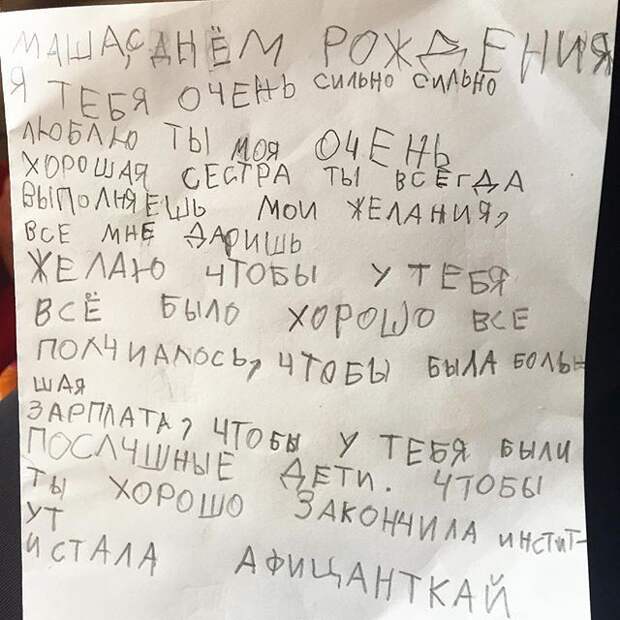 МАША, С ДНЁМ РОЖДЕНИЯ
Я ТЕБЯ ОЧЕНЬ СИЛЬНО СИЛЬНО
ЛЮБЛЮ ТЫ МОЯ ОЧЕНЬ
ХОРОШАЯ СЕСТРА ТЫ ВСЕГДА
ВЫПОЛНЯЕШЬ МОИ ЖЕЛАНИЯ,
ВСЕ МНЕ ДАРИШЬ
ЖЕЛАЮ ЧТОБЫ У ТЕБЯ
ВСЁ БЫЛО ХОРОШО ВСЕ
ПОЛЧИАЛОСЬ, ЧТОБЫ БЫЛА БОЛЬ-
ШАЯ
ЗАРПЛАТА, ЧТОБЫ У ТЕБЯ БЫЛИ
ПОСЛУШНЫЕ ДЕТИ. ЧТОБЫ
ТЫ ХОРОШО ЗАКОНЧИЛА ИНСТИТ-
УТ
И СТАЛА АФИЦАНТКАЙ